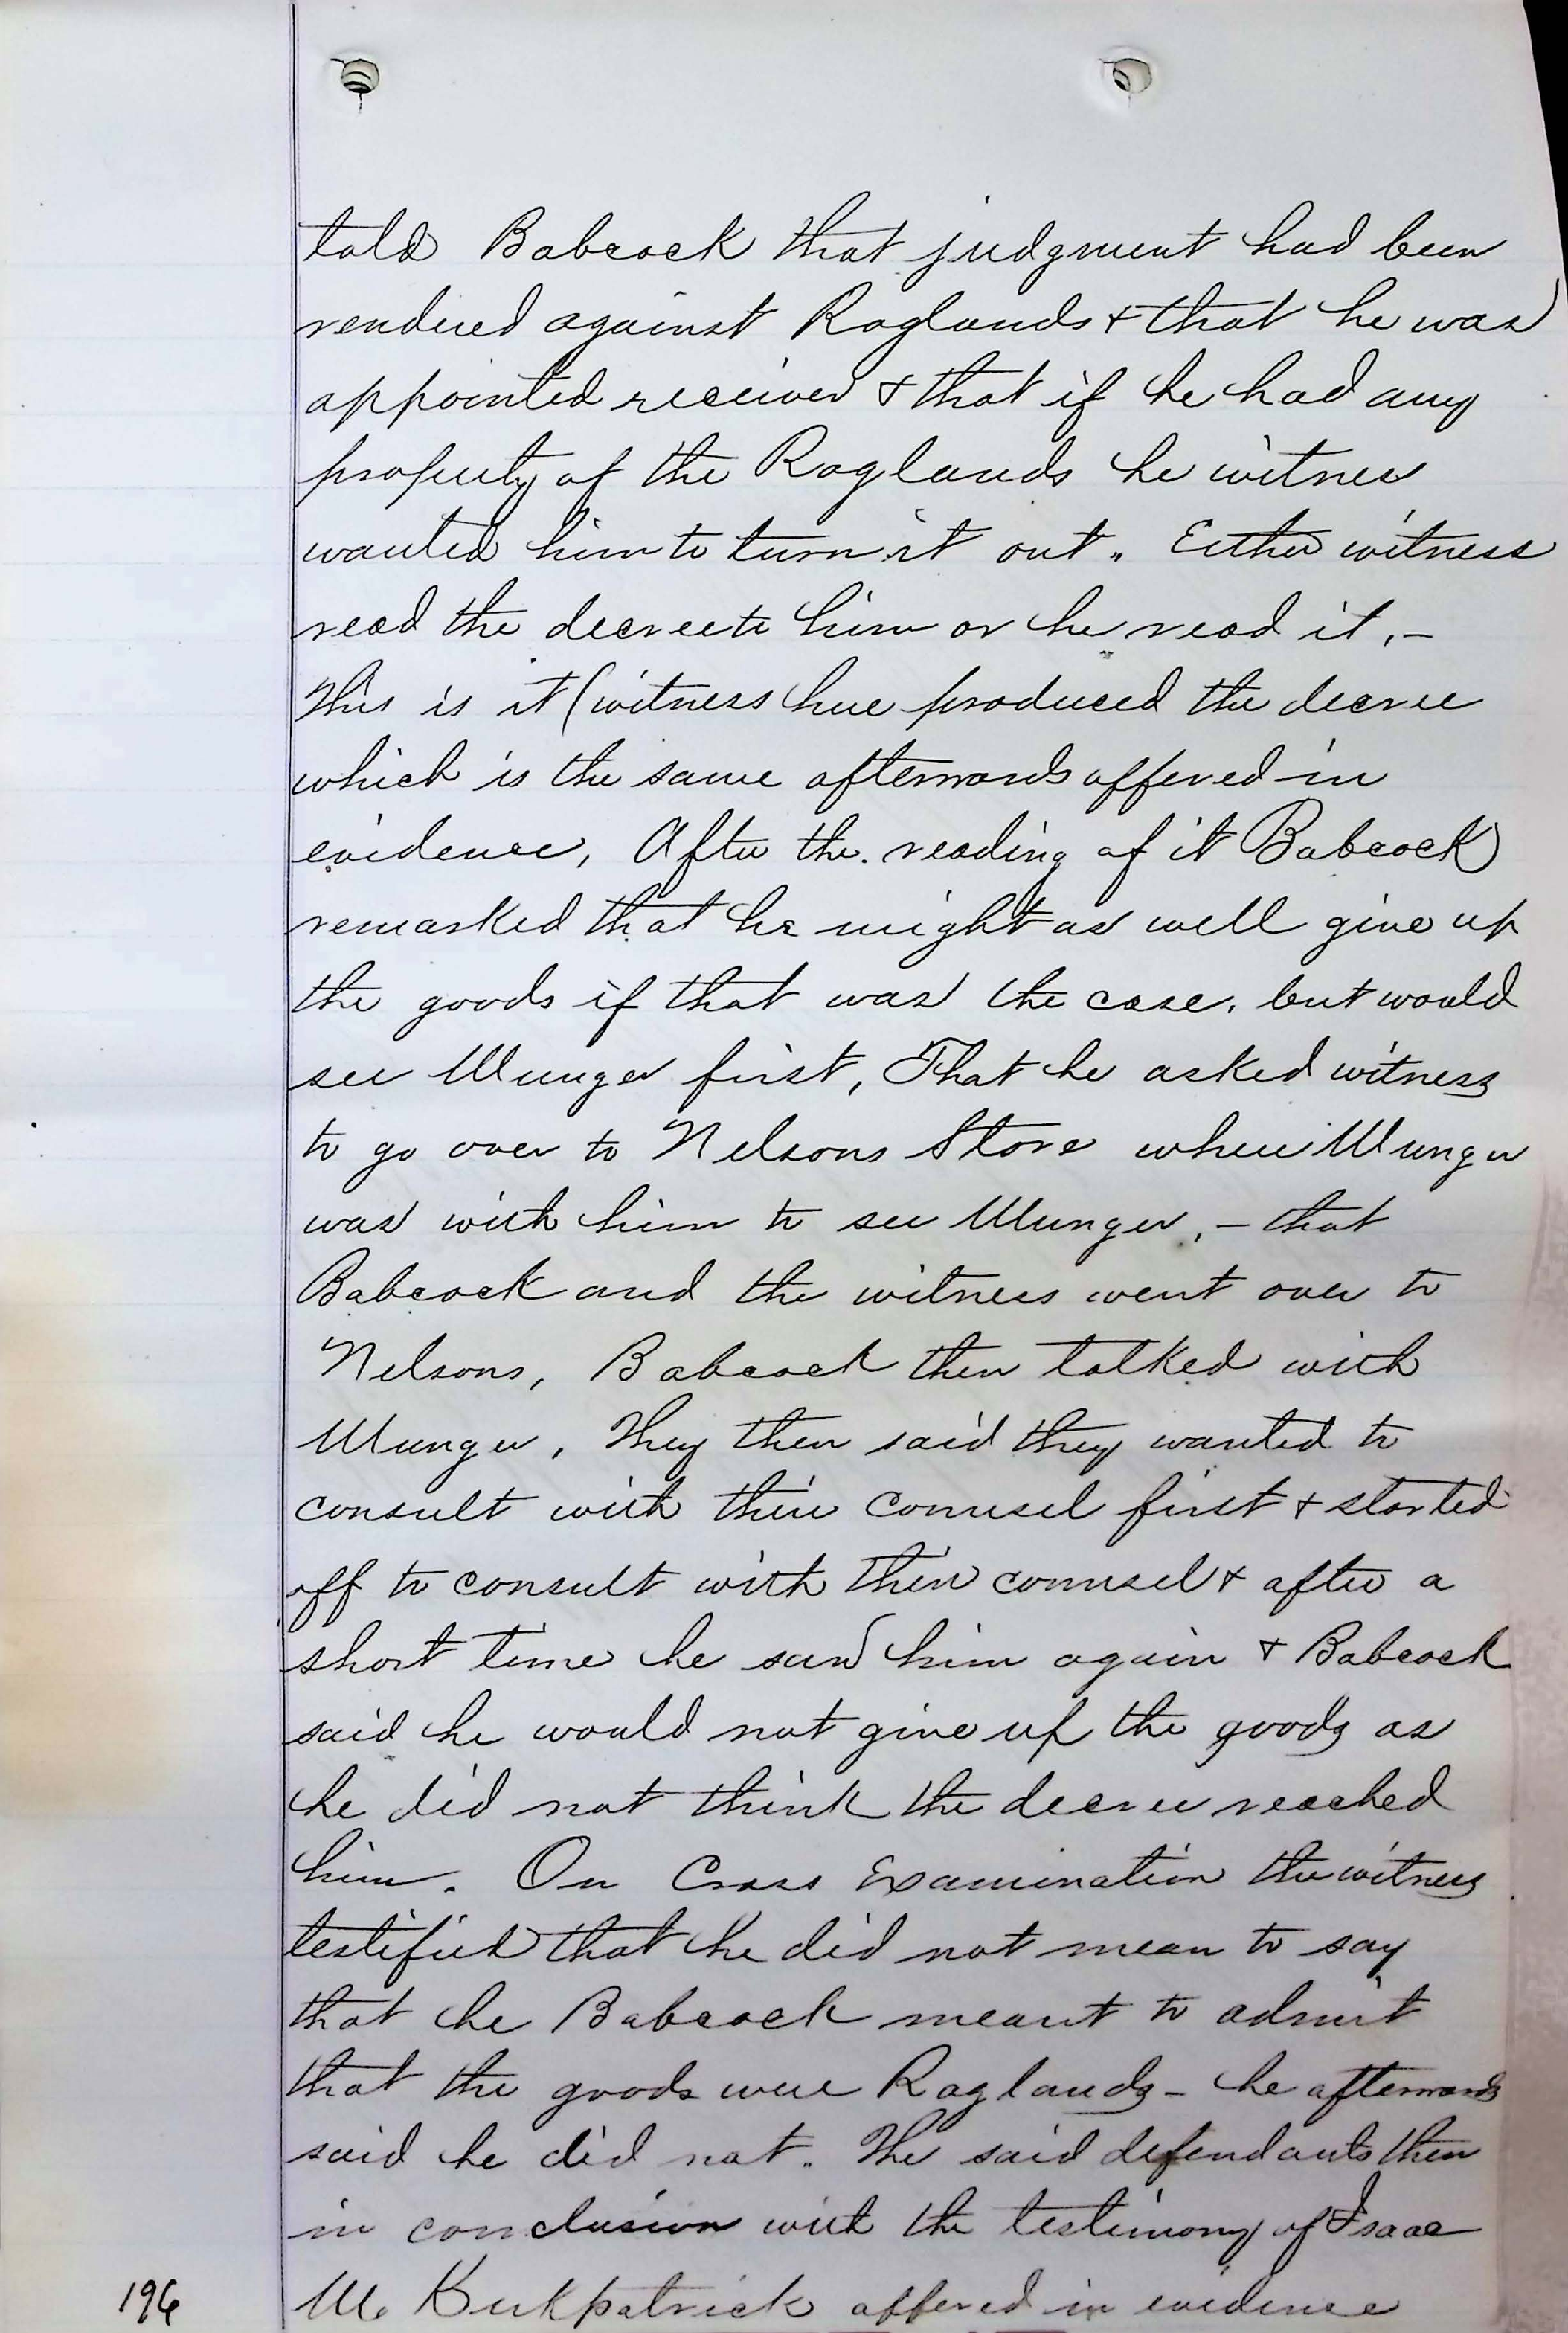 told Babcock that judgment had been
rendered against Raglands & that he was
appointed receiver & that if he had any
property of the Raglands he witness
wanted him to turn it out. Either witness
read the decree to him or he read it, –
This is it (witness here produced the decree
which is the same afterwards offered in
evidence, After the reading of it Babcock
remarked that he might as well give up
the goods if that was the case, but would
see Munger first, That he asked witness
to go over to Nelsons Store where Munger
was with him to see Munger, – that
Babcock and the witness went over to
Nelsons, Babcock then talked with
Munger, They then said they wanted to
consult with their counsel first & started
off to consult with their counsel & after a
short time he saw him again & Babcock
said he would not give up the goods as
he did not think the decree reached
him. On Cross Examination the witness
testified that he did not mean to say
that he Babcock meant to admit
that the goods were Raglands – he afterwards
said he did not. The said defendants then
in conclusion with the testimony of Isaac
M. Kirkpatrick offered in evidence
196